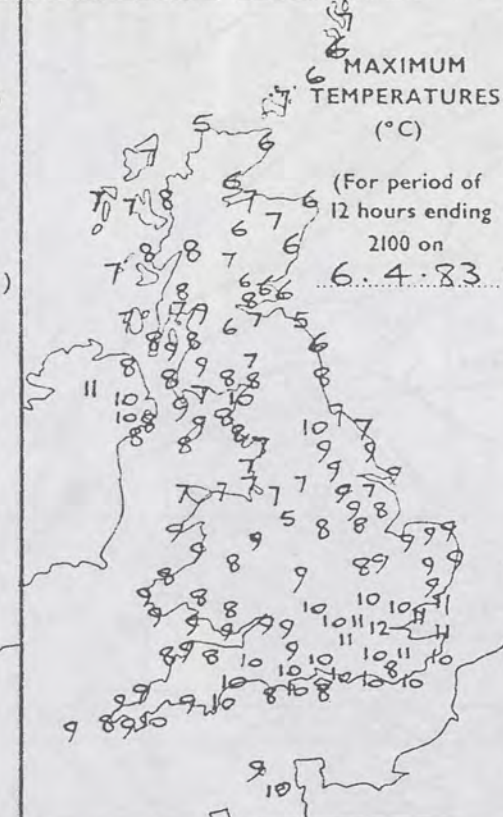 MAXIMUM
TEMPERATURES
(°C)
(For period of
12 hours ending
2100 on
6.4.83
)
7
6
6
7
5
6
7
6
7 7 8
7
6
7
6
6
8 8
7
7
6
8
6 6
8
7
7
7
6 7
5
8
9
8
6
8
9
7
8
11
8
8 8
8
10
9
7
10
10
8
9
8
7
7
8
8
8
7
10
9
7
9
9
7 7
7
7
7
9
7
5
9
8
8
8
9
9
9
9
9
8
9
8
8 9
9
9
9
8
8
10
10
11
9
9
9
9
9
10
11
12
11
11
8
9
8
10
9
10
10
11
11
10
10
8
9
9
10
10
8
10
8
10
10
10
9
8
9
10
9
10